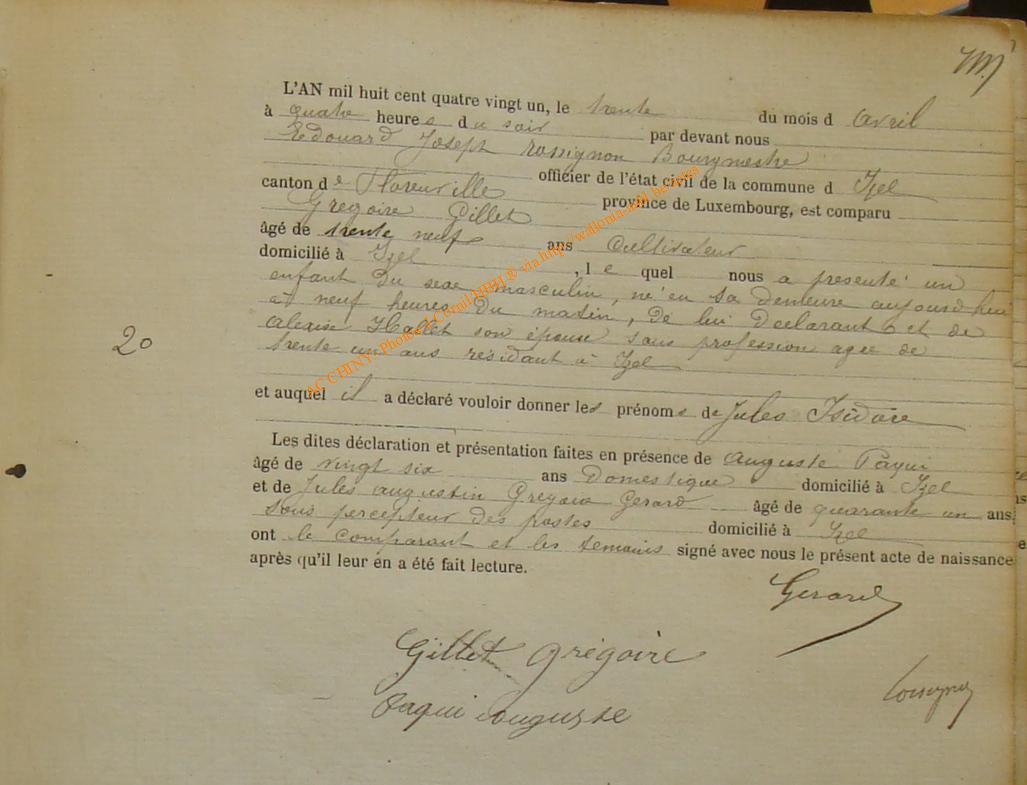 L'AN mil huit cent quatre vingt un, le trente du mois d avril
à quatre heures du soir par devant nous
Edouard Joseph Rossignon Bourgmestre
officier de l'état civil de la commune d Izel
canton de Florenville province de Luxembourg, est comparu
Grégoire Gillet
âgé de trente neuf ans Cultivateur
domicilié à Izel, le quel nous a présenté un
enfant du sexe masculin, né en sa demeure aujourd'hui
à neuf heures du matin, de lui déclarant et de
Alexise Hallet son épouse sans profession agée de
20
trente un ans résidant à Izel
et auquel il a déclaré vouloir donner les prénoms de Jules Isidore
Les dites déclaration et présentation faites en présence de Auguste Paqui
âgé de vingt six ans Domestique domicilié à Izel
et de Jules Augustin Grégoire Gerard âgé de quarante un ans
sous percepteur des postes domicilié à Izel
ont le comparant et les témoins signé avec nous le présent acte de naissance
après qu'il leur en a été fait lecture.
Gerard
Gillet Grégoire
Paqui Auguste